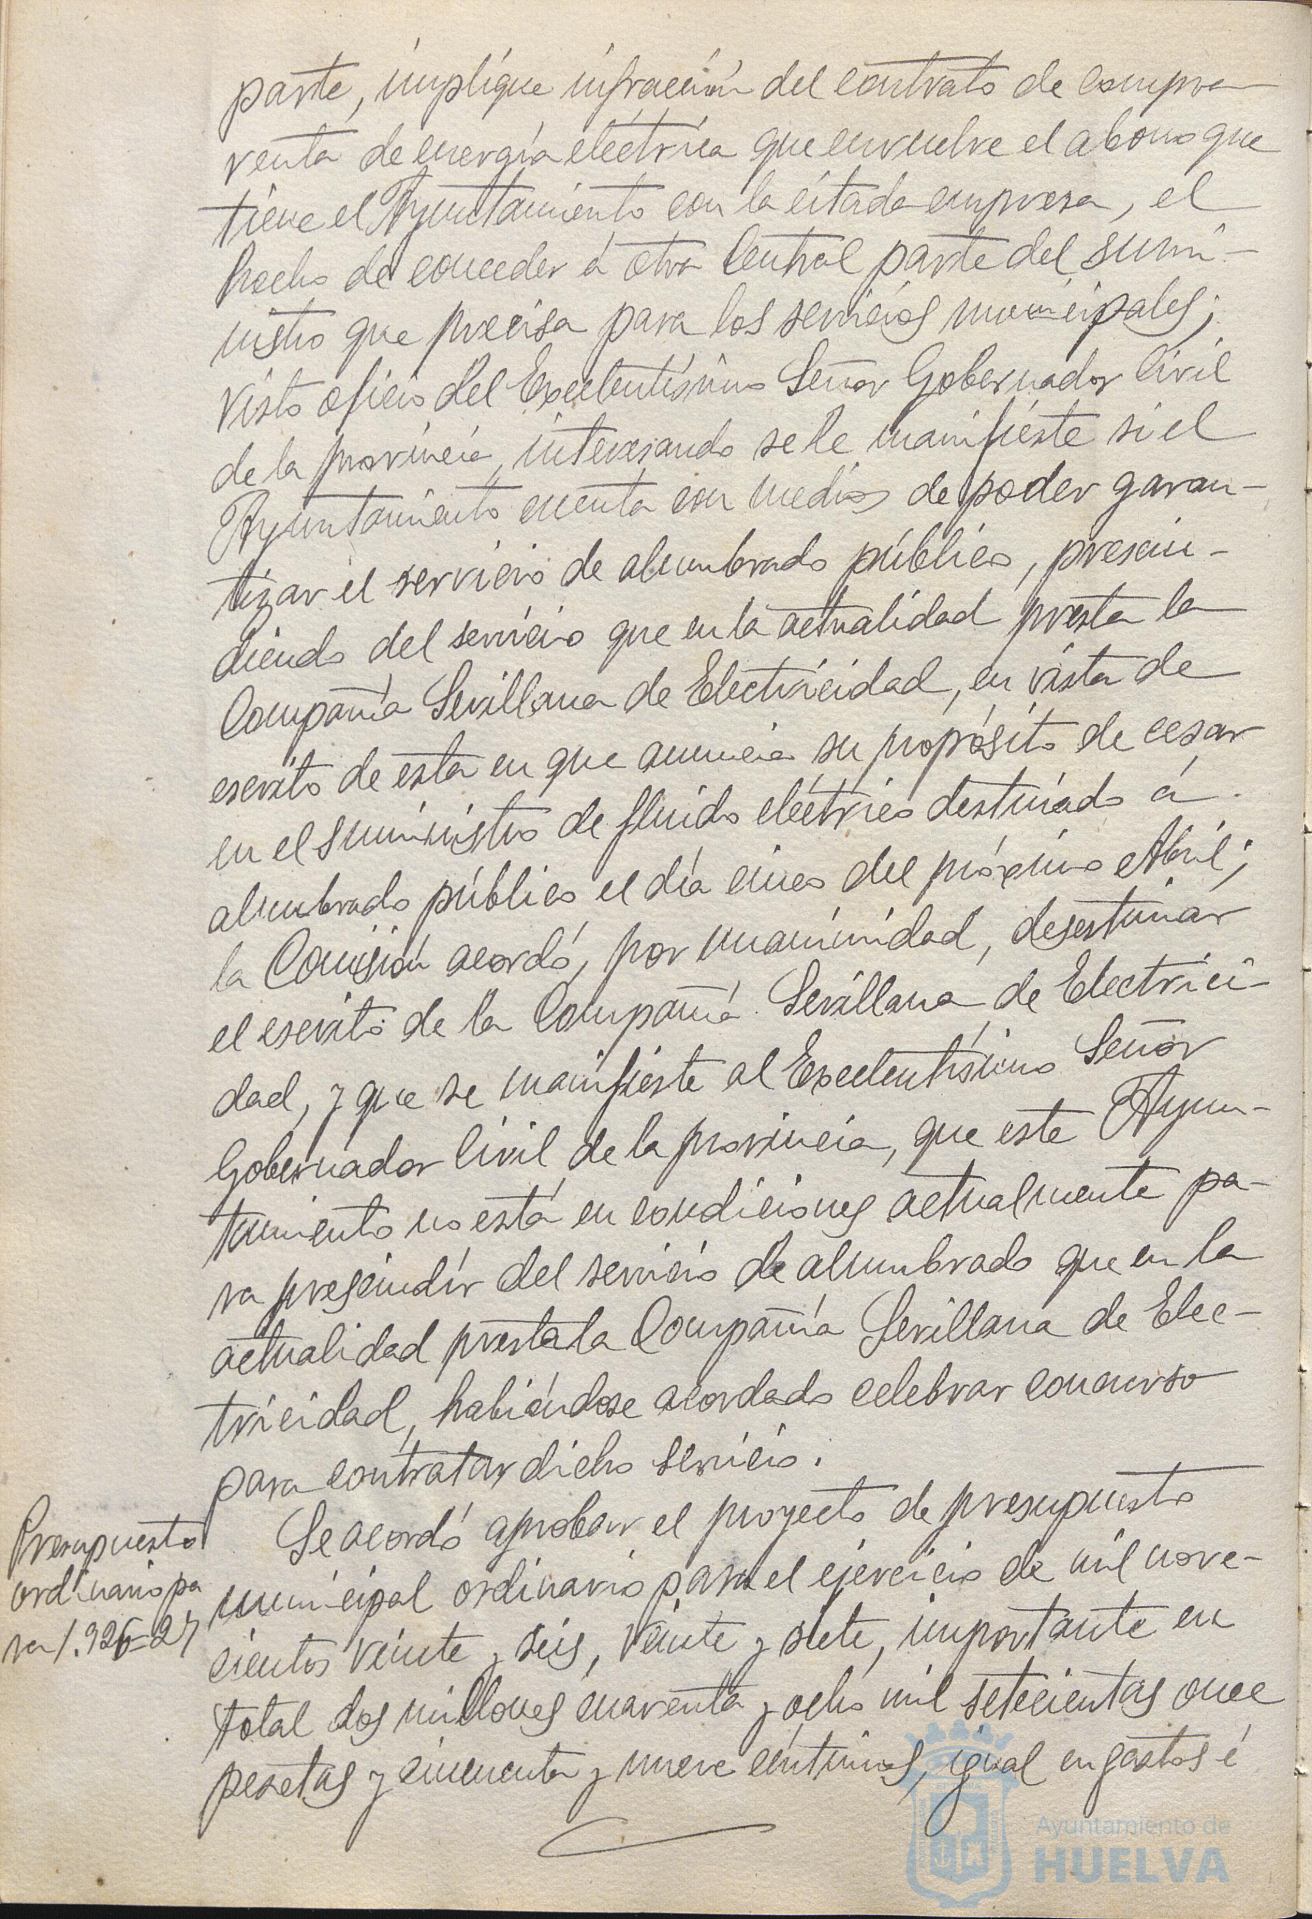 parte, implique infracción del contrato de compra
venta de energía eléctrica que envuelve el abono que
tiene el Ayuntamiento con la citada empresa, el
hecho de conceder á otra Central parte del sumi-
nistro que precisa para los servicios municipales;
visto oficio del Excelentísimo Señor Gobernador Civil
de la provincia, interesando se le manifieste si el
Ayuntamiento cuenta con medios de poder garan-
tizar el servicio de alumbrado público, prescin-
diendo del servicio que en la actualidad presta la
Compañía Sevillana de Electricidad, en vista de
escrito de esta en que anuncia su propósito de cesar
en el suministro de fluido eléctrico destinado á
alumbrado público el día cinco del próximo Abril;
la Comisión acordó, por unanimidad, desestimar
el escrito de la Compañía Sevillana de Electrici-
dad, y que se manifieste al Excelentísimo Señor
Gobernador Civil de la provincia, que este Ayun-
tamiento no está en condiciones actualmente pa-
ra prescindir del servicio de alumbrado que en la
actualidad presta la Compañía Sevillana de Elec-
tricidad, habiéndose acordado celebrar concurso
para contratar dicho servicio.
Presupuesto
ordinario pa
ra 1.926=27
Se acordó aprobar el proyecto de presupuesto
municipal ordinario para el ejercicio de mil nove-
cientos veinte y seis, veinte y siete, importante en
total dos millones cuarenta y ocho mil setecientas once
pesetas y cincuenta y nueve céntimos, igual en gastos é
Ayuntamiento de
HUELVA